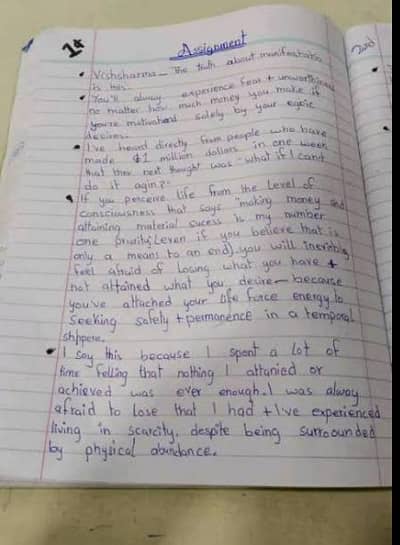 1st
Assignment
2nd
• Vishsharma – The truth about manifestation
is this.
• You'll alway experience fear + unworthiness
no matter how much money you make if
you're motivated solely by your egoic
desires.
• I've heard directly from people who have
made $1 million dollars in one week
that their next thought was – "what if I can't
do it agin?"
• If you perceive life from the Level of
consciousness that says "making money and
attaining material sucess is my number
one priority (even if you believe that is
only a means to an end) you will inevitably
feel afraid of losing what you have +
not attained what you desire – because
you've attached your life force energy to
seeking safety + permanence in a temporal
shppere.
• I say this because I spent a lot of
time felling that nothing I attanied or
achieved was ever enough. I was alway
afraid to lose that I had + I've experienced
living in scarcity, despite being surroounded
by physical abundance.